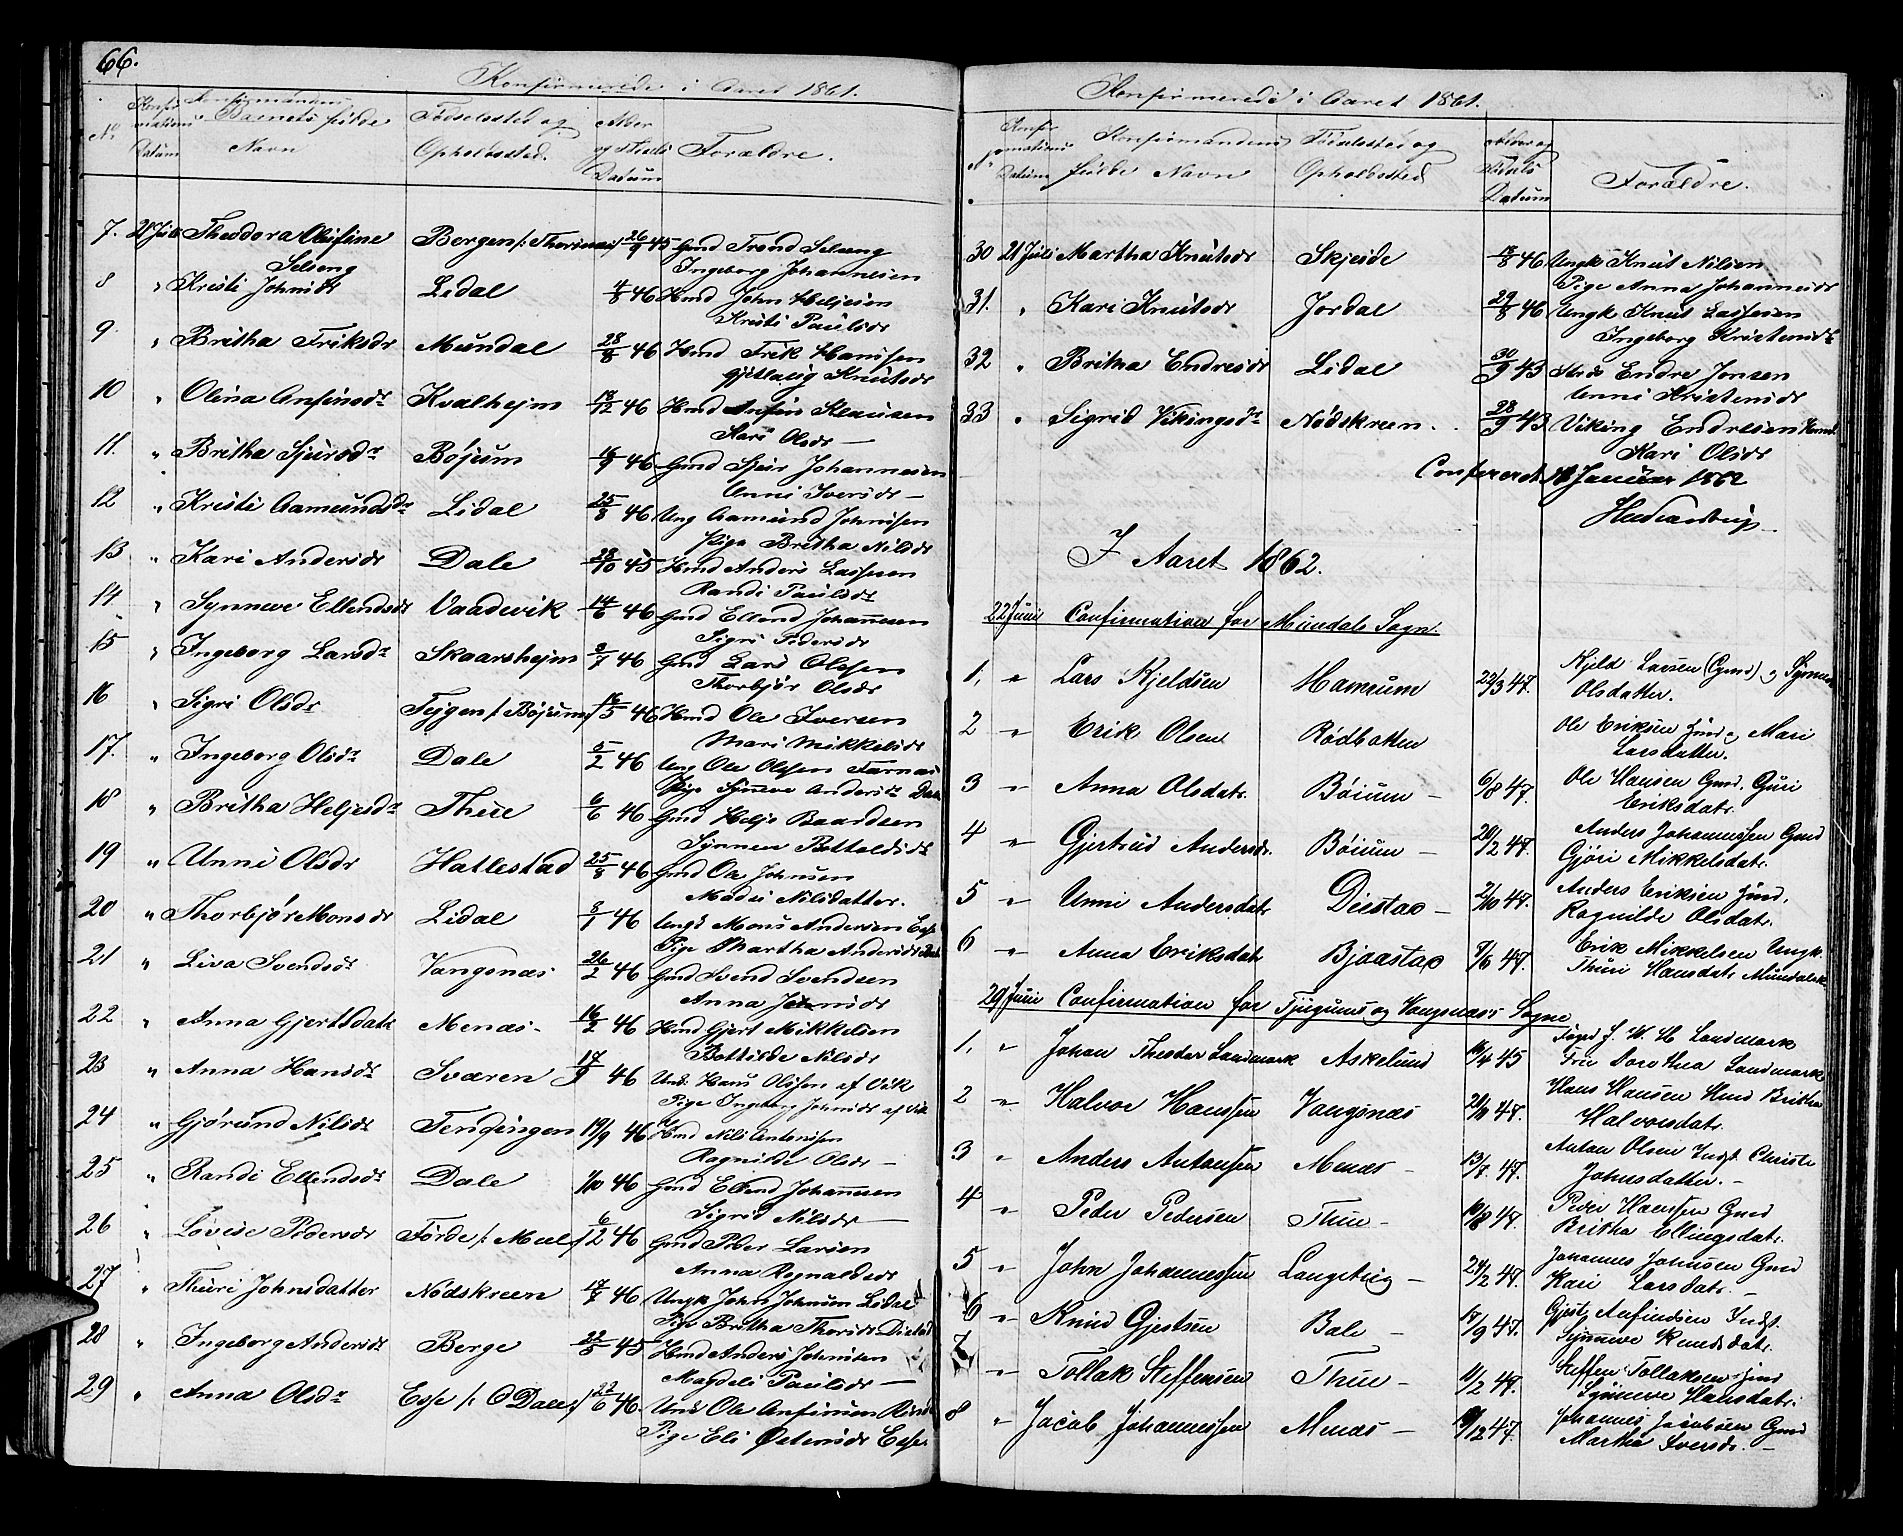 66.
Konfirmerede i Aaret 1861.
No Konfirmations Datum Konfirmandens Barnets fulde Navn Fødselssted og Opholdssted. Alder og Fødsels Datum Forældre.
7. 21 Juli Theodora Olufine Bergen /: Thorsnæs / 26/9 45 Gmd Trond Selseng
Selseng Ingeborg Johannesen
8 " Kristi Johnsdr Lidal 4/8 46 Hmd John Heljesen
Kristi Paulsdr
9. " Britha Eriksdr Mundal 28/8 46 Hmd Erik Hanssen
Gjetlaug Knutsdr
10 " Olina Anfinsdr Kvalhejm 18/12 46 Hmd Anfin Klausen
Kari Olsdr —
11. " Britha Sjursdr Bøjum 16/9 46 Gmd Sjur Johannesen
Unni Iversdr —
12 " Kristi Aamundsdr Lidal 25/8 46 Ung Aamund Johnsen
Pige Britha Nilsdr
13 " Kari Andersdr Dale 28/10 45 Hmd Anders Lassesen
Randi Paulsdr
14 " Synneve Ellendsdr Vaadevik 14/6 46 Gmd Ellend Johannesen
Sigri Pedersdr
15 " Ingeborg Larsdr Skaarshejm 3/7 46 Gmd Lars Olssen
Thorbjør Olsdr
16 " Sigri Olsdr Tejgen /: Bøjum / 16/5 46 Hmd Ole Iversen
Mari Mikkelsdr
17. " Ingeborg Olsdr Dale 5/2 46 Ung Ole Olssen Farnæs
Pige Synneve Andersdr Dale
18 " Britha Heljesdr Thue 6/6 46 Gmd Helje Baardsen
Synneve Bottolfsdr
19 " Unni Olsdr Hatlestad 25/8 46 Gmd Ole Johnsen
Madli Nilsdatter.
20 " Thorbjør Monsdr Lidal 3/1 46 Ung Mons Andersen Esse
Pige Martha Andersdr
21 " Liva Svendsdr Vangsnæs 26/2 46 Gmd Svend Svendsen
Anna Johnsdr
22 " Anna Gjertsdatr Menæs - 16/2 46 Hmd Gjert Mikkelsen
Bottilde Nilsdr
23 " Anna Hansdr Sværen 17/9 46 Und. Hans Olssen af Vik
Pige Ingeborg Johnsdr af Vik
24 " Gjørund Nilsdr Tenqingen 19/9 46 Hmd Nils Antonsen
Ragnilde Olsdr —
25 " Randi Ellendsdr Dale 1/10 46 Gmd Ellend Johannesen
Sigrid Nilsdr —
26 " Lovise Pedersdr Førde /: Meel / 6/12 46 Gmd Peder Larsen
Anna Ragnaldsdr
27 " Thuri Johnsdatter Nødskreen 17/7 46 Ungk John Johnsen Lidal
Pige Britha Thorsdr Distad
28 " Ingeborg Andersdr Berge 22/5 45 Hmd Anders Johnsen
Magdeli Paulsdr —
29 " Anna Olsdr Esse /: O Dale / 22/6 46. Und Ole Anfinsen Rinde
Pige Eli Østensdr Esse
Konfirmerede i Aaret 1861.
No Konfirmations Datum Konfirmandens fulde Navn Fødselssted og Opholdssted Alder og Fødsels Datum Forældre.
30 21 Juli Martha Knutsdr Skjeide 17/8 46 Ungk Knut Nilsen
Pige Anna Johannesdr
31. " Kari Knutsdr Jordal 29/8 46 Ungk Knut Lassesen
Ingeborg Kristensdr
32 " Britha Endresdr Lidal 30/9 43 Endre Jonsen
Unni Kristensdr
33 " Sigrid Vikingsdr Nødskreen. 28/9 43 Viking Endresen
Kari Olsdr
Confereret Januar 1862
I Aaret 1862.
22 Juni Confirmation for Mundals Sogn.
1, " Lars Kjeldsen Hamrum 22/3 47. Kjeld Larsen (Gmd) og Synneve
Olsdatter.
2 " Erik Olsen Rødbotten Ole Eriksen Jund og Mari
Larsdatter.
3 " Anna Olsdatr. Bøium - 6/8 47. Ole Hansen Gmd. Guri
Eriksdatr.
4 " Gjertrud Andersdr. Bøium - 20/2 47. Anders Johannessen Gmd
Gjøri Mikkelsdatr.
5 " Unni Andersdatr Distad - 2/10 47. Anders Eriksen Jund.
Ragnilde Olsdatr.
6 " Anna Eriksdatr Bjaastad 7/6 47. Erik Mikkelsen Ungk.
Thuri Hansdatr Mundalsk
29 Juni Confirmation for Tjugums og Vangsnæs Sogne
1, " Johan Theodor Landmark Askelund 16/4 45 Foged J. W. H. Landmark
Fru Dorothea Landmark
2 " Halvor Hanssen Vangsnæs 24/10 47. Hans Hansen Hmd Britha
Halvorsdatr.
3 " Anders Antonsen Menæs - 13/7. 47. Anton Olsen Indst. Christi
Johnsdatter. -
4 " Peder Pedersen Thue - 10/8 47. Peder Hanssen Gmd
Britha Ellingsdatr.
5 " John Johannessen Langeteig - 24/2 47. Johannes Johnsen Gmd
Kari Larsdatr. -
6 " Knud Gjertsen Bale - 17/9 47. Gjert Anfindsen Indst.
Synneve Knudsdatr.
7 " Tollak Steffensen Thue - 11/2 47. Steffen Tollaksen Jund
Synneve Hansdatr.
8 " Jacob Johannessen Menæs - 9/12 47. Johannes Jacobsen Gmd
Martha Iversdr. -